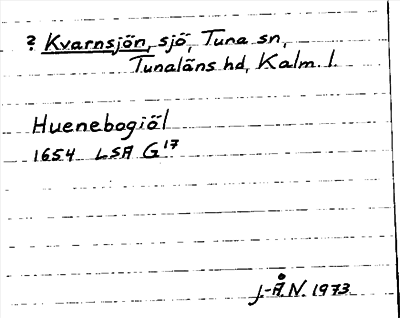 ? Kvarnsjön, sjö, Tuna sn,
Tunaläns hd, Kalm. l.
Huenebogiöl
1654 LSA G17
J.-Å.N. 1973